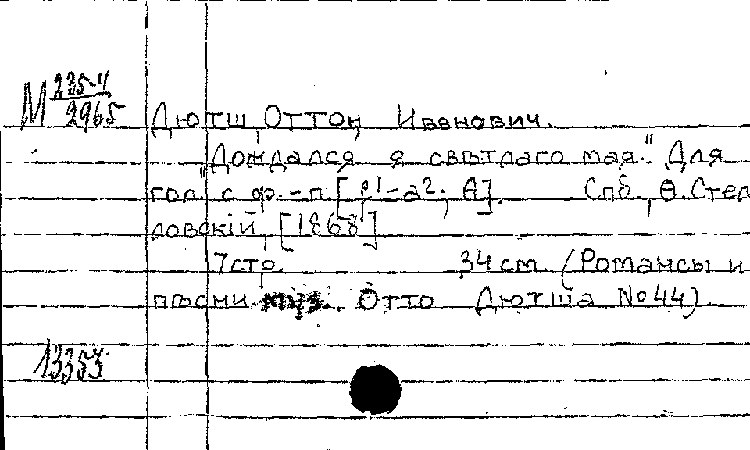 М 225-4/2965
Дютш, Оттон Иванович.
"Дождался я свѣтлаго мая." Для
гол. с ф.-п. [e¹-a²; A]. Спб., Ѳ. Стел
ловскій, [1868]
7 стр. 34 см (Романсы и
пѣсни муз. Отто Дютша №44)
13353